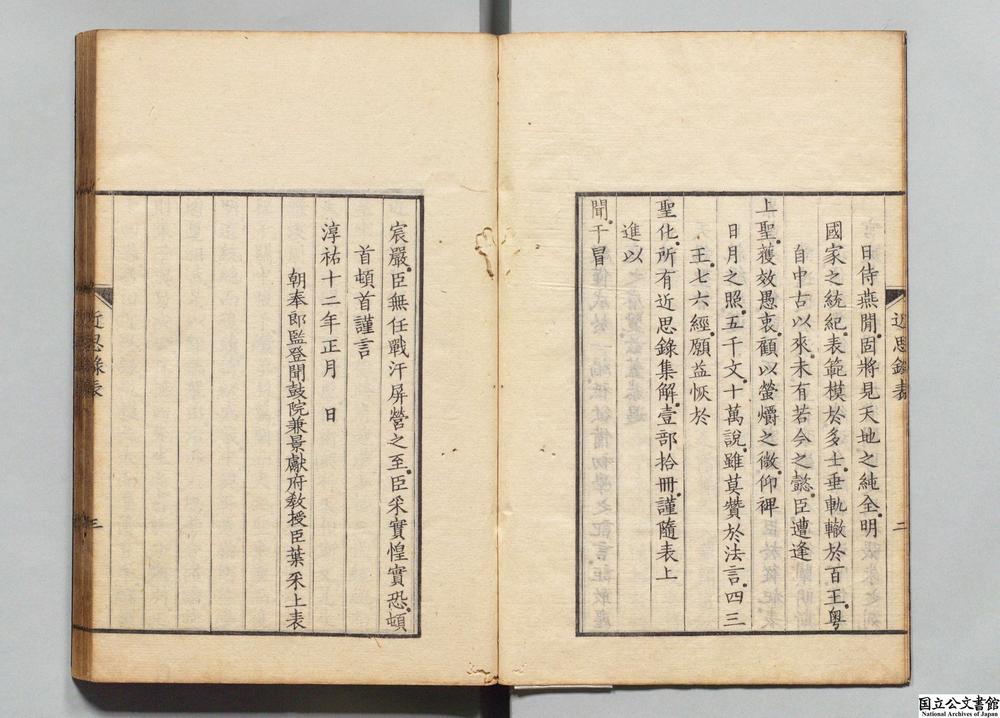 日侍燕閒固將見天地之純全明
國家之統紀表範模於多士垂軌轍於百王粤
自中古以來未有若今之懿臣遭逢
上聖獲效愚衷顧以螢爝之微仰裨
日月之照五千文十萬說雖莫贊於法言四三
王七六經願益恢於
聖化所有近思錄集解壹部拾冊謹隨表上
進以
聞干冒
宸嚴臣無任戰汗屏營之至臣采實惶實恐頓
首頓首謹言
淳祐十二年正月　日
朝奉郎監登聞鼓院兼景獻府敎授臣葉采上表
近思錄表
二
近思錄表
三
国立公文書館
National Archives of Japan